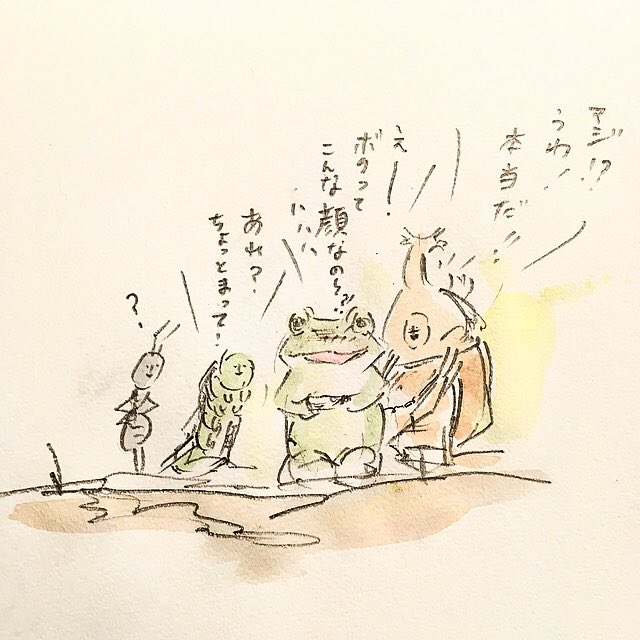 マジ!?
うわ!
本当だ!!
え!
ボクって
こんな顔なの〜?!
ハハハ
あれ?
ちょっとまって!
?